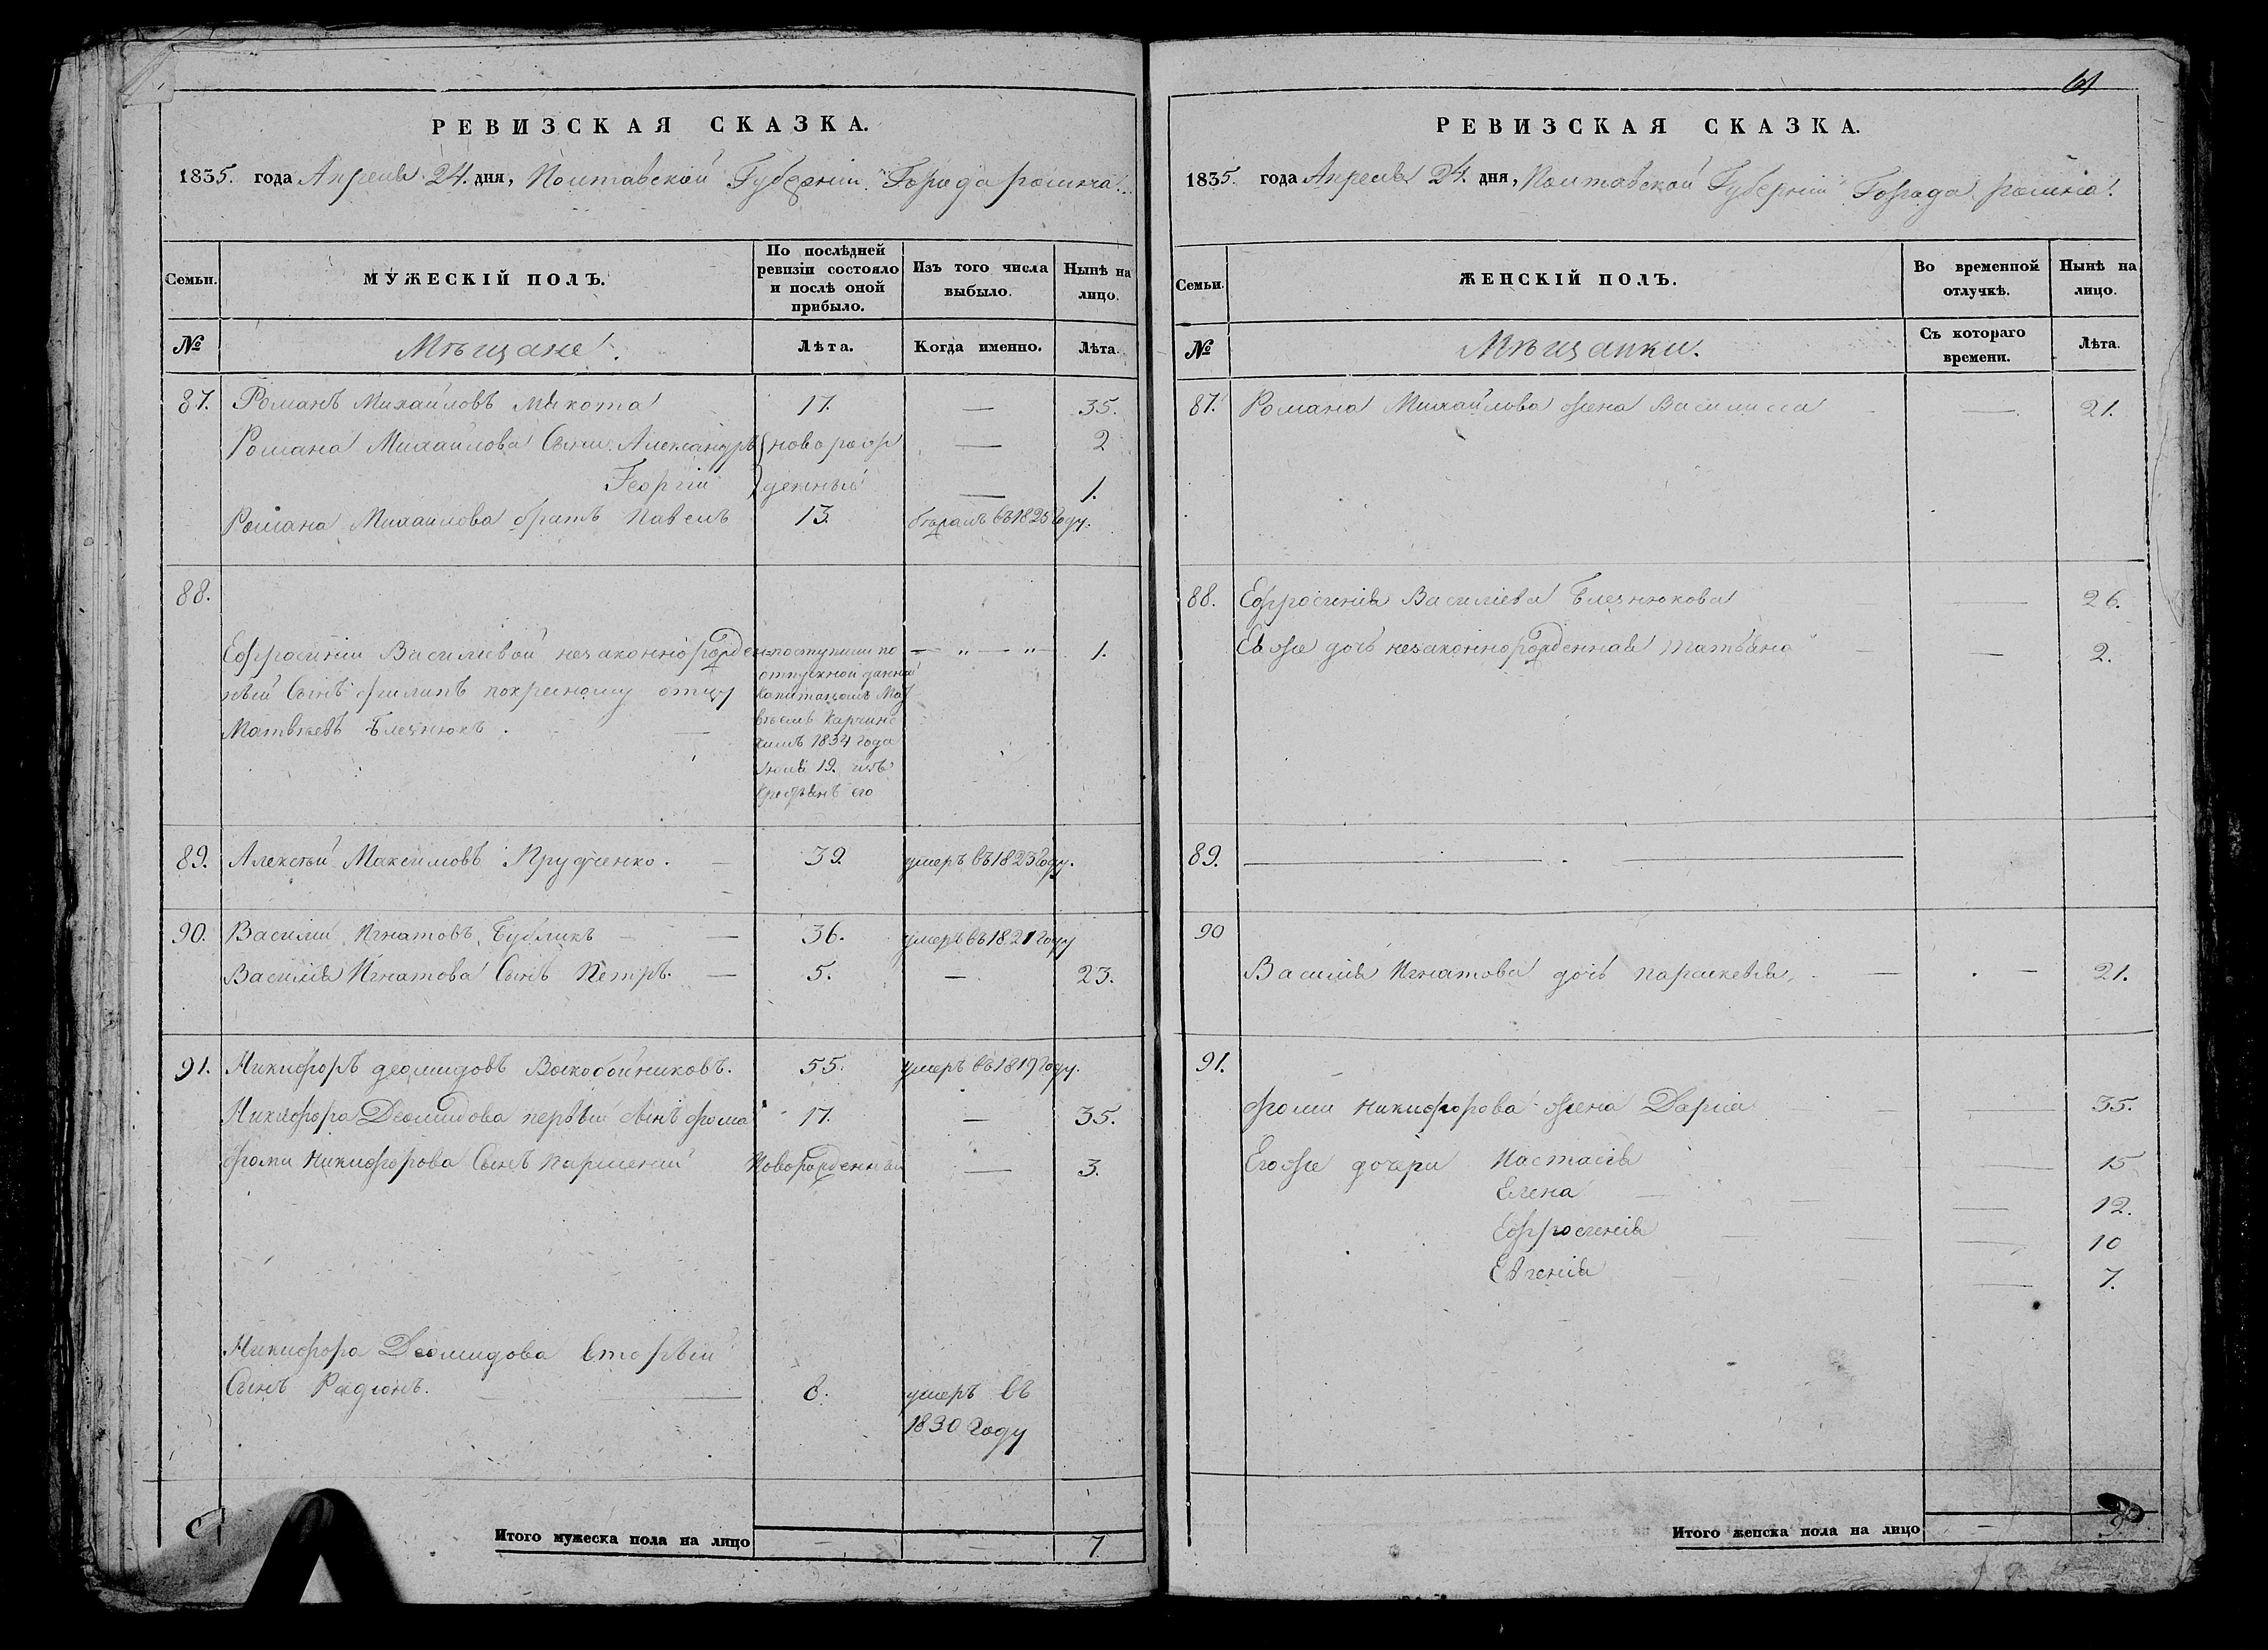 РЕВИЗСКАЯ СКАЗКА.
1835. года Апреля 24. дня, Полтавской Губерніи Города ромна.
Семьи.
МУЖЕСКІЙ ПОЛЪ.
По послѣдней ревизіи состояло и послѣ оной прибыло.
Изъ того числа выбыло.
Нынѣ на лицо.
№
Мѣщане.
Лѣта.
Когда именно.
Лѣта.
87. Романъ Михайловъ Макота 17. — 35.
Романа Михайлова Сыни. Александръ новорож — 2
Георгій денный — 1.
Романа Михаилова братъ Павелъ 13. въ 1825 Году.
88.
Ефросиніи Василіевой незаконнорожден- поступили по — " — " — 1.
ный Сынъ Филипъ покресному отцу отпускной данной
Капитаномъ Мат
Матвѣевъ вѣемъ
кимъ 1834 Года
19. изъ
Крестьянъ его
89. Алексѣй Максимовъ Прудченко. — 39. умеръ въ 1823 Году.
90. Василій Игнатовъ Бубликъ — 36. умеръ въ 1821 Году
Василія Игнатова Сынъ Петръ. — 5. — 23.
91. Никифоръ Деомидовъ Воскобойниковъ. 55. умеръ въ 1819 Году.
Никифора Деомидова первый Сынъ Фома 17. — 35.
Фоми Никифорова Сынъ Парменій Новорожденный — 3.
Никифора Деомидова вторый
Сынъ Радіонъ. — 8. умеръ въ
1830 Году
Итого мужеска пола на лицо — — 7
61
РЕВИЗСКАЯ СКАЗКА.
1835. года Апреля 24. дня, Полтавской Губерніи Города ромна.
Семьи.
ЖЕНСКІЙ ПОЛЪ.
Во временной отлучкѣ.
Нынѣ на лицо.
№
Мѣщанки.
Съ котораго времени.
Лѣта.
87. Романа Михайлова жена Василисса — 21.
88. Ефросинія Василіева — 26.
Ея же дочь незаконнорожденная Татьяна — 2.
89. —
90
Василія Игнатова дочь параскевія. — 21.
91.
Фоми Никифорова жена Дарія — 35.
Его же дочери Настасія — 15
Елена — 12.
Ефросинія — 10
Евгенія — 7.
Итого женска пола на лицо — 9